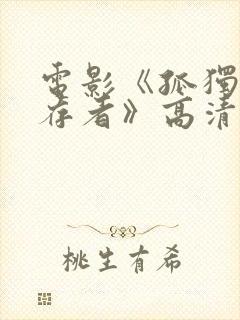 電影《孤獨
存者》高清
桃生有希